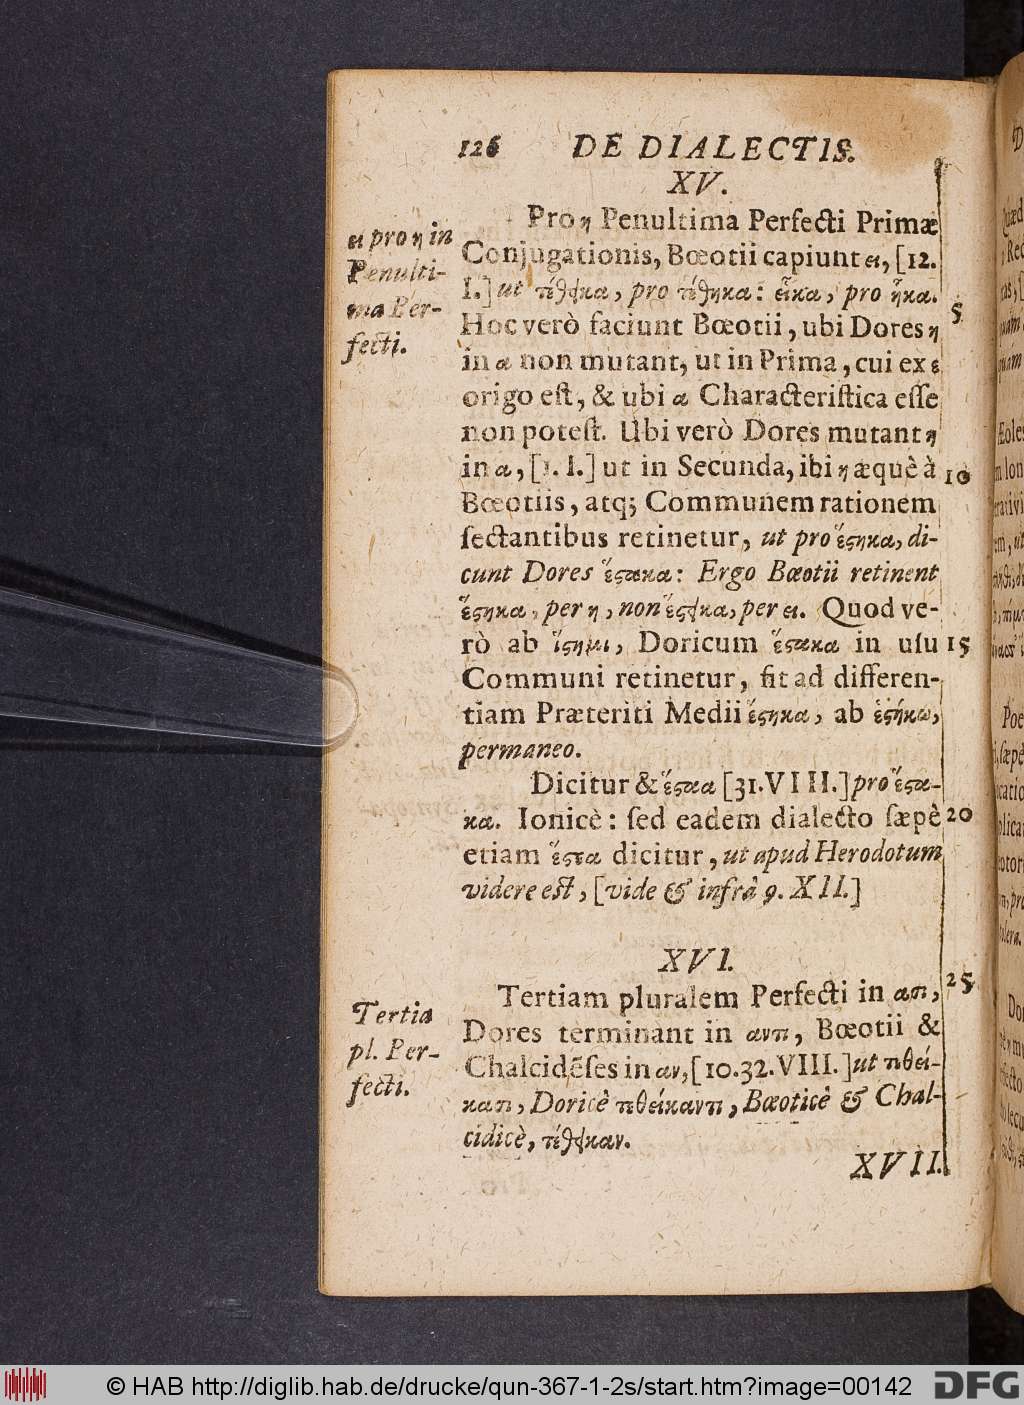 126 DE DIALECTIS.
XV.
ει pro η in
Penulti-
ma Per-
fecti.
Pro η Penultima Perfecti Primæ
Conjugationis, Bœotii capiunt ει, [12.
I.] ut τέθεικα, pro τέθηκα: εἷκα, pro ἧκα.
Hoc verò faciunt Bœotii, ubi Dores η 5
in α non mutant, ut in Prima, cui ex ε
origo eſt, & ubi α Characteriſtica eſſe
non poteſt. Ubi verò Dores mutant η
in α, [1. I.] ut in Secunda, ibi η æquè à 10
Bœotiis, atq; Communem rationem
ſectantibus retinetur, ut pro ἕϛηκα, di-
cunt Dores ἕϛακα: Ergo Bœotii retinent
ἕϛηκα, per η, non ἕϛεικα, per ει. Quod ve-
rò ab ἵϛημι, Doricum ἕϛακα in uſu 15
Communi retinetur, fit ad differen-
tiam Præteriti Medii ἕϛηκα, ab ἑϛήκω,
permaneo.
Dicitur & ἕϛαα [31. VIII.] pro ἕϛα-
κα. Ionicè: ſed eadem dialecto ſæpè 20
etiam ἕϛεα dicitur, ut apud Herodotum
videre eſt, [vide & infrà 9. XII.]
XVI.
Tertia
pl. Per-
fecti.
Tertiam pluralem Perfecti in ασι, 25
Dores terminant in αντι, Bœotii &
Chalcidẽſes in αν, [10. 32. VIII.] ut τιθεί-
κασι, Doricè τιθείκαντι, Bœoticè & Chal-
cidicè, τέθεικαν.
XVII.
© HAB http://diglib.hab.de/drucke/qun-367-1-2s/start.htm?image=00142 DFG